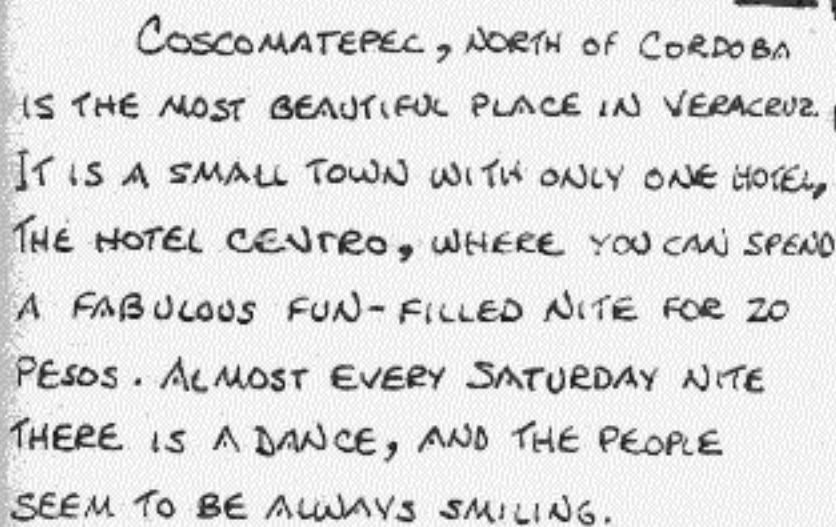 COSCOMATEPEC, NORTH OF CORDOBA
IS THE MOST BEAUTIFUL PLACE IN VERACRUZ.
IT IS A SMALL TOWN WITH ONLY ONE HOTEL,
THE HOTEL CENTRO, WHERE YOU CAN SPEND
A FABULOUS FUN-FILLED NITE FOR 20
PESOS. ALMOST EVERY SATURDAY NITE
THERE IS A DANCE, AND THE PEOPLE
SEEM TO BE ALWAYS SMILING.